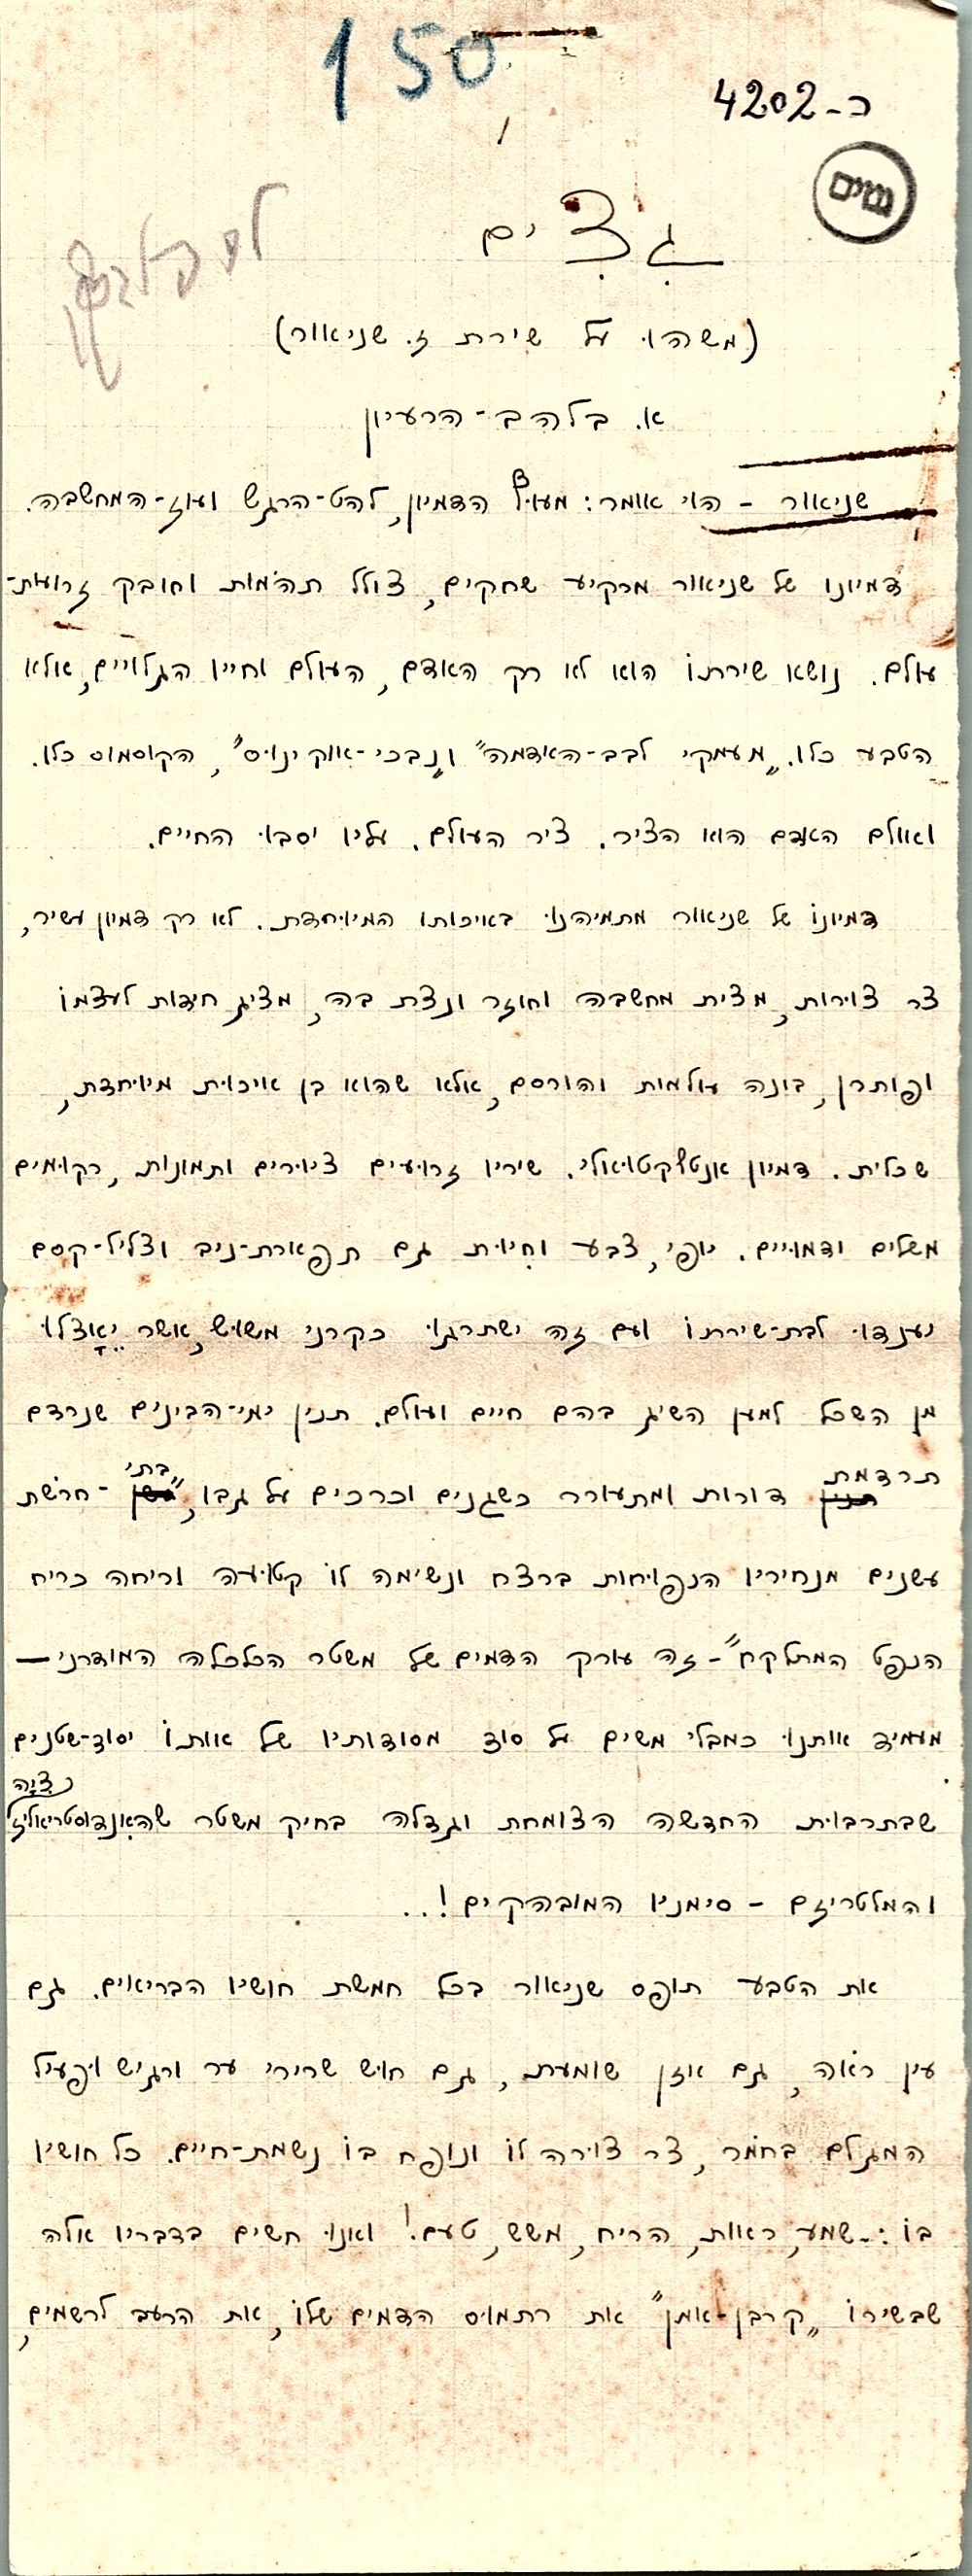 150
כ-4202
גנזים
גִצִים
(משהו על שירת ז. שניאור)
א. בלהב-הרעיון
שניאור - הוי אומר: מעוף הדמיון, להט-הרגש ועוז-המחשבה.
דמיונו של שניאור מרקיע שחקים, צולל תהֹמות וחובק זרועות-
עולם. נושא שירתוֹ הוא לא רק האדם, העולם וחייו הגלויים, אלא
הטבע כלו. „מעמקי לבב-האדמה" ו„נבכי-אוקינוס", הקוסמוס כלו.
ואולם האדם הוא הציר. ציר העולם. עליו יסבו החיים.
דמיונוֹ של שניאור מתמיהנו באיכותו המיוחדת. לא רק דמיון עשיר,
צר צורות, מצית מחשבה וחוזר ונצת בה, מציג חידות לעצמוֹ
ופותרן, בונה עולמות והורסם, אלא שהוא בן איכות מיוחדת,
שכלית. דמיון אנטלקטואלי. שיריו זרועים ציורים ותמונות, רקומים
משלים ודמויים. יופי, צבע וחִיות גם תפארת-ניב וצליל-קסם
יענדו לבת-שירתוֹ ועם זה ישתרגו כקרני משוש, אשר יֵאָצלוּ
מן השכל למען השיג בהם חיים ועולם. תנין ימי-הבינים שנרדם
תרדמת דורות ומתעורר כשגנים וכרכים על גבו, „בתי-חרשת
עשנים מנחיריו הנפוחות ברצח ונשימה לוֹ קטועה וריחה כריח
הנפט המתלקח" - זה עורק הדמים של משטר הכלכלה המודרני —
מעמיד אותנו כמבלי משים על סוד מסודותיו של אותוֹ יסוד-שטנים
שבתרבות החדשה הצומחת וגדלה בחיק משטר שהאִנדוסטריאליזציה
והמלטריזם - סימניו המובהקים!..
את הטבע תופס שניאור בכל חמשת חושיו הבריאים. גם
עין רֹאה, גם אוזן שומעת, גם חוש שרירי ער ורגיש ופעיל
המגלם בחֹמר, צר צורה לוֹ ונופח בוֹ נשמת-חיים. כל חושיו
בוֹ: שמע, ראות, הריח, משש, טעם! ואנו חשים בדבריו אלה
שבשירוֹ „קרבן-אמן" את רתמוס הדמים שלוֹ, את הרעב לרשמים,